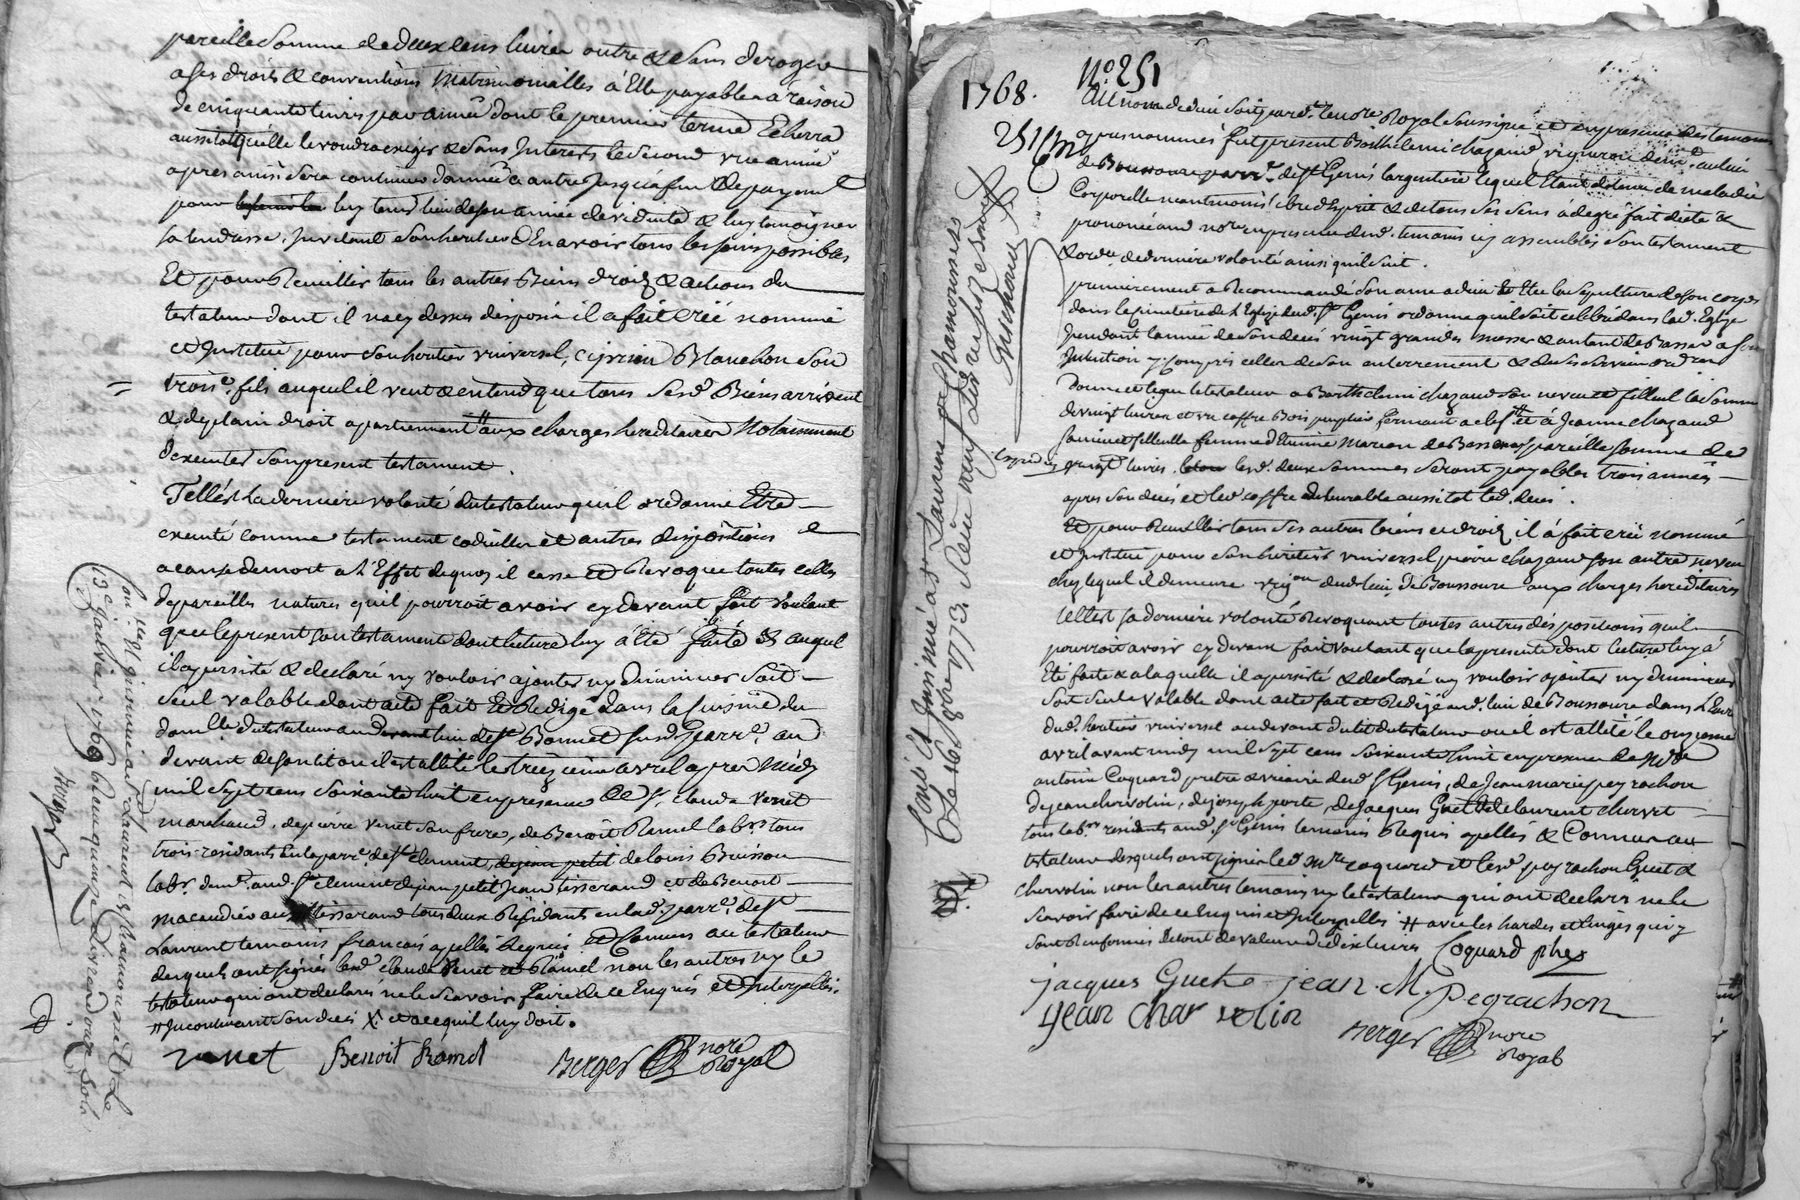 pareille somme de deux cens livres outre & sans deroger
a ses droits & conventions matrimonialles à Elle payable a raison
de cinquante livres par année dont le premier terme Echerra
aussitot qu'elle le voudra exiger & sans Interets le second une année
apres ainsi sera continué d'année a autre jusqu'a fin de payement
pour luy tenir lieu de son année de viduité & luy temoigner
sa tendresse, Invitant son heritier d'En avoir tous les soins possibles
Et pour Recueillir tous les autres Biens droits & actions du
testateur dont il n'a cy dessus disposé il a fait créé nommé
et Institué pour son heritier universel, Ciprien Blanchon son
trois.e fils auquel il veut & entend que tous ses d. Biens arrivent
& de plain droit apartiennent aux charges hereditaires Notamment
d'executer son present testament.
Telle est sa derniere volonté du testateur qu'il ordonne Etre
executé comme testament codicille et autres dispositions
a cause de mort a l'Effet de quoy il casse et Revoque toutes celles
de pareilles natures qu'il pourroit avoir cy devant fait voulant
que le present son testament dont lecture luy a été faite & auquel
il a persisté & declaré ny vouloir ajouter ny diminuer soit
seul valable dont acte fait et Redigé dans la cuisine du
domicile du testateur au lieu de St Bonnet susd. parr.e au
devant de son lit ou il est allité le treizieme avril apres midy
mil sept cens soixante huit en presence de S.r Claude Venet
marchand, de pierre Venet son frere, de Benoit Ramel lab.rs tous
trois residants En la parr.e de St Clement, de Louis Buisson
lab.r dem.t aud. St Clement de jean petit jean tisserand et de Benoit
macaudier aussi tisserand tous deux Residants en lad. parr.e de St
Laurent temoins francois apellés Requis et Connus au testateur
desquels ont signés lesd. Claude Venet et Ramel non les autres ny le
testateur qui ont declarés ne le scavoir faire de ce Enquis et Interpellés.
# Incontinant son décès X. et ce qu'il luy doit.
Venet Benoit Ramel Berger nore Royal
1768. N.o 251
251
Au nom de dieu soit pard.t le no.re Royal soussigné et en presence des temoins
apres nommés fut present Barthelemi chazaud vigneron dem.t au lieu
de Boussoure parr.e de St Genis l'argentiere lequel Etant detenu de maladie
Corporelle neantmoins libre d'Esprit & de tous ses sens à de gré fait dicté &
prononcé aud. no.re en presence desd. temoins icy assemblés son testament
& ord.ce de derniere volonté ainsi qu'il suit.
premierement a Recommandé son ame a dieu Et Elu la sepulture de son corps
dans le cimetiere de l'Eglize dud. St Genis ordonne qu'il soit celebré dans lad. Eglize
pendant l'année de son deces vingt grandes messes & autant de Basses a son
Intention y compris celles de son enterrement & de ses services ordinaires
donne et legue le testateur a Barthelemi chazaud son neveu et filleul la somme
de vingt livres et un coffre Bois peuplier fermant a clef # et à Jeanne chazaud
sa niece et filleulle femme d'Etienne Marion de Bessenay pareille somme de
vingt livres. lesd. deux sommes seront payables trois années
apres son deces et led. coffre delivrable aussitot led. deces.
Et pour Recueillir tous ses autres biens et droits il à fait créé nommé
et Institué pour son heritier universel pierre chazaud son autre neveu
chez lequel il demeure vig.on dud. lieu de Boussoure aux charges hereditaires
telle est sa derniere volonté Revoquant toutes autres dispositions qu'il
pourroit avoir cy devant fait voulant que la presente dont lecture luy à
Eté faite & a laquelle il a persisté & declaré ny vouloir ajouter ny diminuer
soit seule valable dont acte fait et Redigé aud. lieu de Boussoure dans
dud. heritier universel au devant du lit du testateur ou il est allité le onzieme
avril avant midy mil sept cens soixante huit en presence de M.re
antoine Coquard pretre & vicaire dud. St Genis, de jean marie pegrachon
de jean chervolin, de joseph porte, de jacques Guet & de laurent chervet
tous lab.rs residants aud. St Genis temoins Requis apellés & Connus au
testateur desquels ont signés led. M.re coquard et lesd. pegrachon Guet &
chervolin non les autres temoins ny le testateur qui ont declarés ne le
scavoir faire de ce Enquis et Interpellés # avec les hardes et linges qui y
sont Renfermés le tout de valeur de dix livres Coquard ptre
jacques Guet jean M. Pegrachon
jean charvolin Berger nore Royal